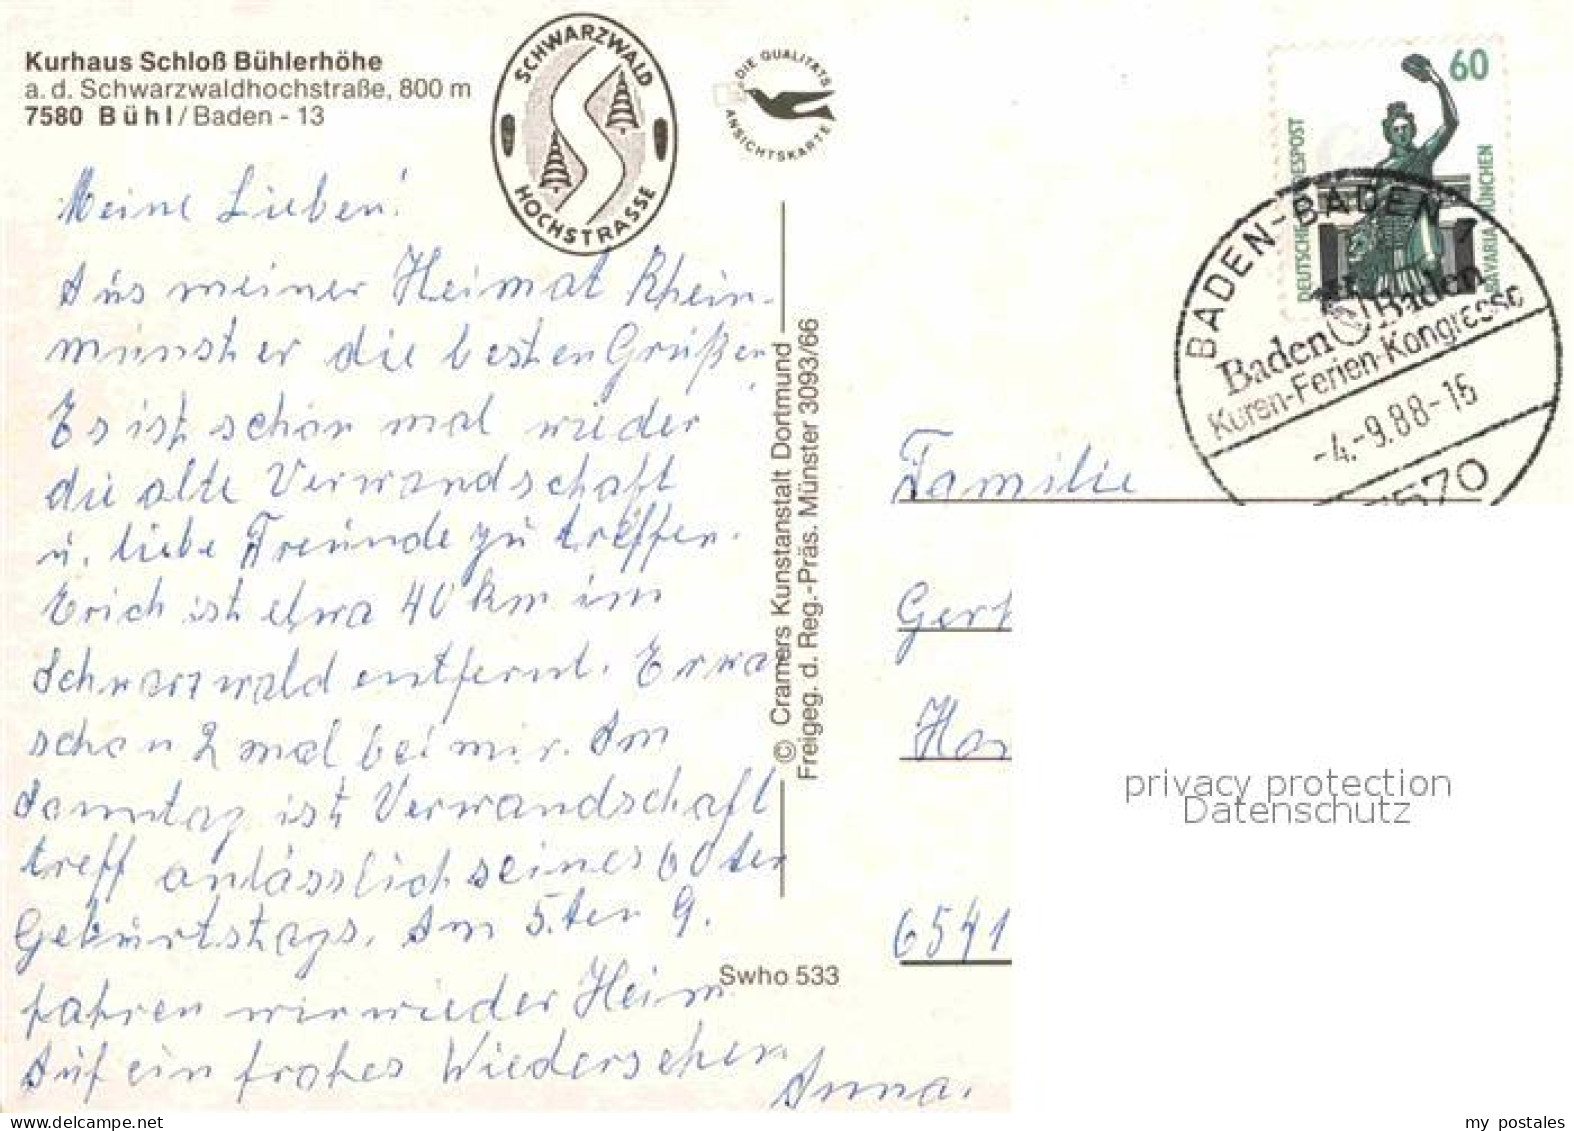 Kurhaus Schloß Bühlerhöhe
a. d. Schwarzwaldhochstraße, 800 m
7580 Bühl / Baden - 13
SCHWARZWALD
HOCHSTRASSE
DIE QUALITÄTS
ANSICHTSKARTE
60
DEUTSCHE BUNDESPOST
BAVARIA MÜNCHEN
BADEN-BADEN
Baden Baden
Kuren-Ferien-Kongresse
-4.-9.88-16
7570
Meine Lieben!
Aus meiner Heimat Rhein-
münster die besten Grüßen.
Es ist schön mal wieder
die alte Verwandschaft
u. liebe Freunde zu treffen.
Erich ist etwa 40 km im
Schwarzwald entfernt. Er wa
schon 2 mal bei mir. Am
Sonntag ist Verwandschaft
treff anlässlich seines 60 ten
Geburtstags. Am 5.ten 9.
fahren wir wieder Heim
Auf ein frohes Wiedersehen
Anna.
© Cramers Kunstanstalt Dortmund
Freigeg. d. Reg.-Präs. Münster 3093/66
Swho 533
Familie
Gert
Hor
6541
privacy protection
Datenschutz
www.ansichtskarten-center.de
my postales